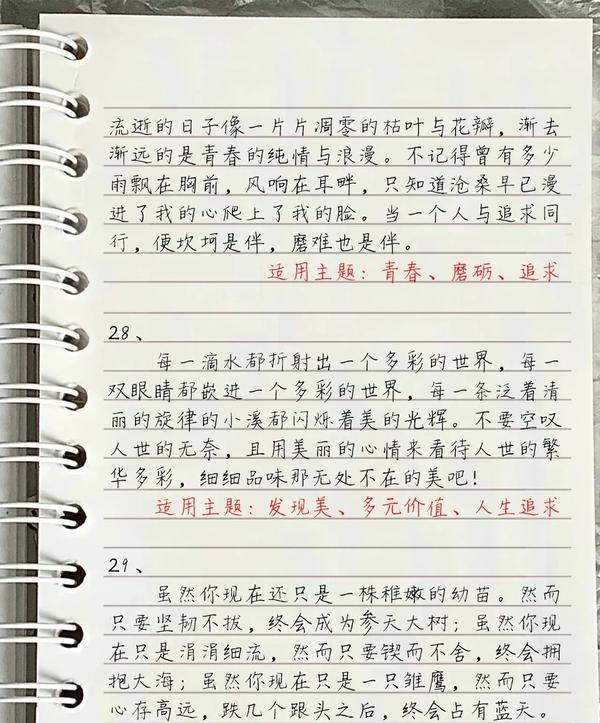 流逝的日子像一片片凋零的枯叶与花瓣，渐去
渐远的是青春的纯情与浪漫。不记得曾有多少
雨飘在胸前，风响在耳畔，只知道沧桑早已漫
进了我的心爬上了我的脸。当一个人与追求同
行，便坎坷是伴，磨难也是伴。
适用主题：青春、磨砺、追求
28、
每一滴水都折射出一个多彩的世界，每一
双眼睛都嵌进一个多彩的世界，每一条泛着清
丽的旋律的小溪都闪烁着美的光辉。不要空叹
人世的无奈，且用美丽的心情来看待人世的繁
华多彩，细细品味那无处不在的美吧！
适用主题：发现美、多元价值、人生追求
29、
虽然你现在还只是一株稚嫩的幼苗。然而
只要坚韧不拔，终会成为参天大树；虽然你现
在只是涓涓细流，然而只要锲而不舍，终会拥
抱大海；虽然你现在只是一只雏鹰，然而只要
心存高远，跌几个跟头之后，终会占有蓝天。